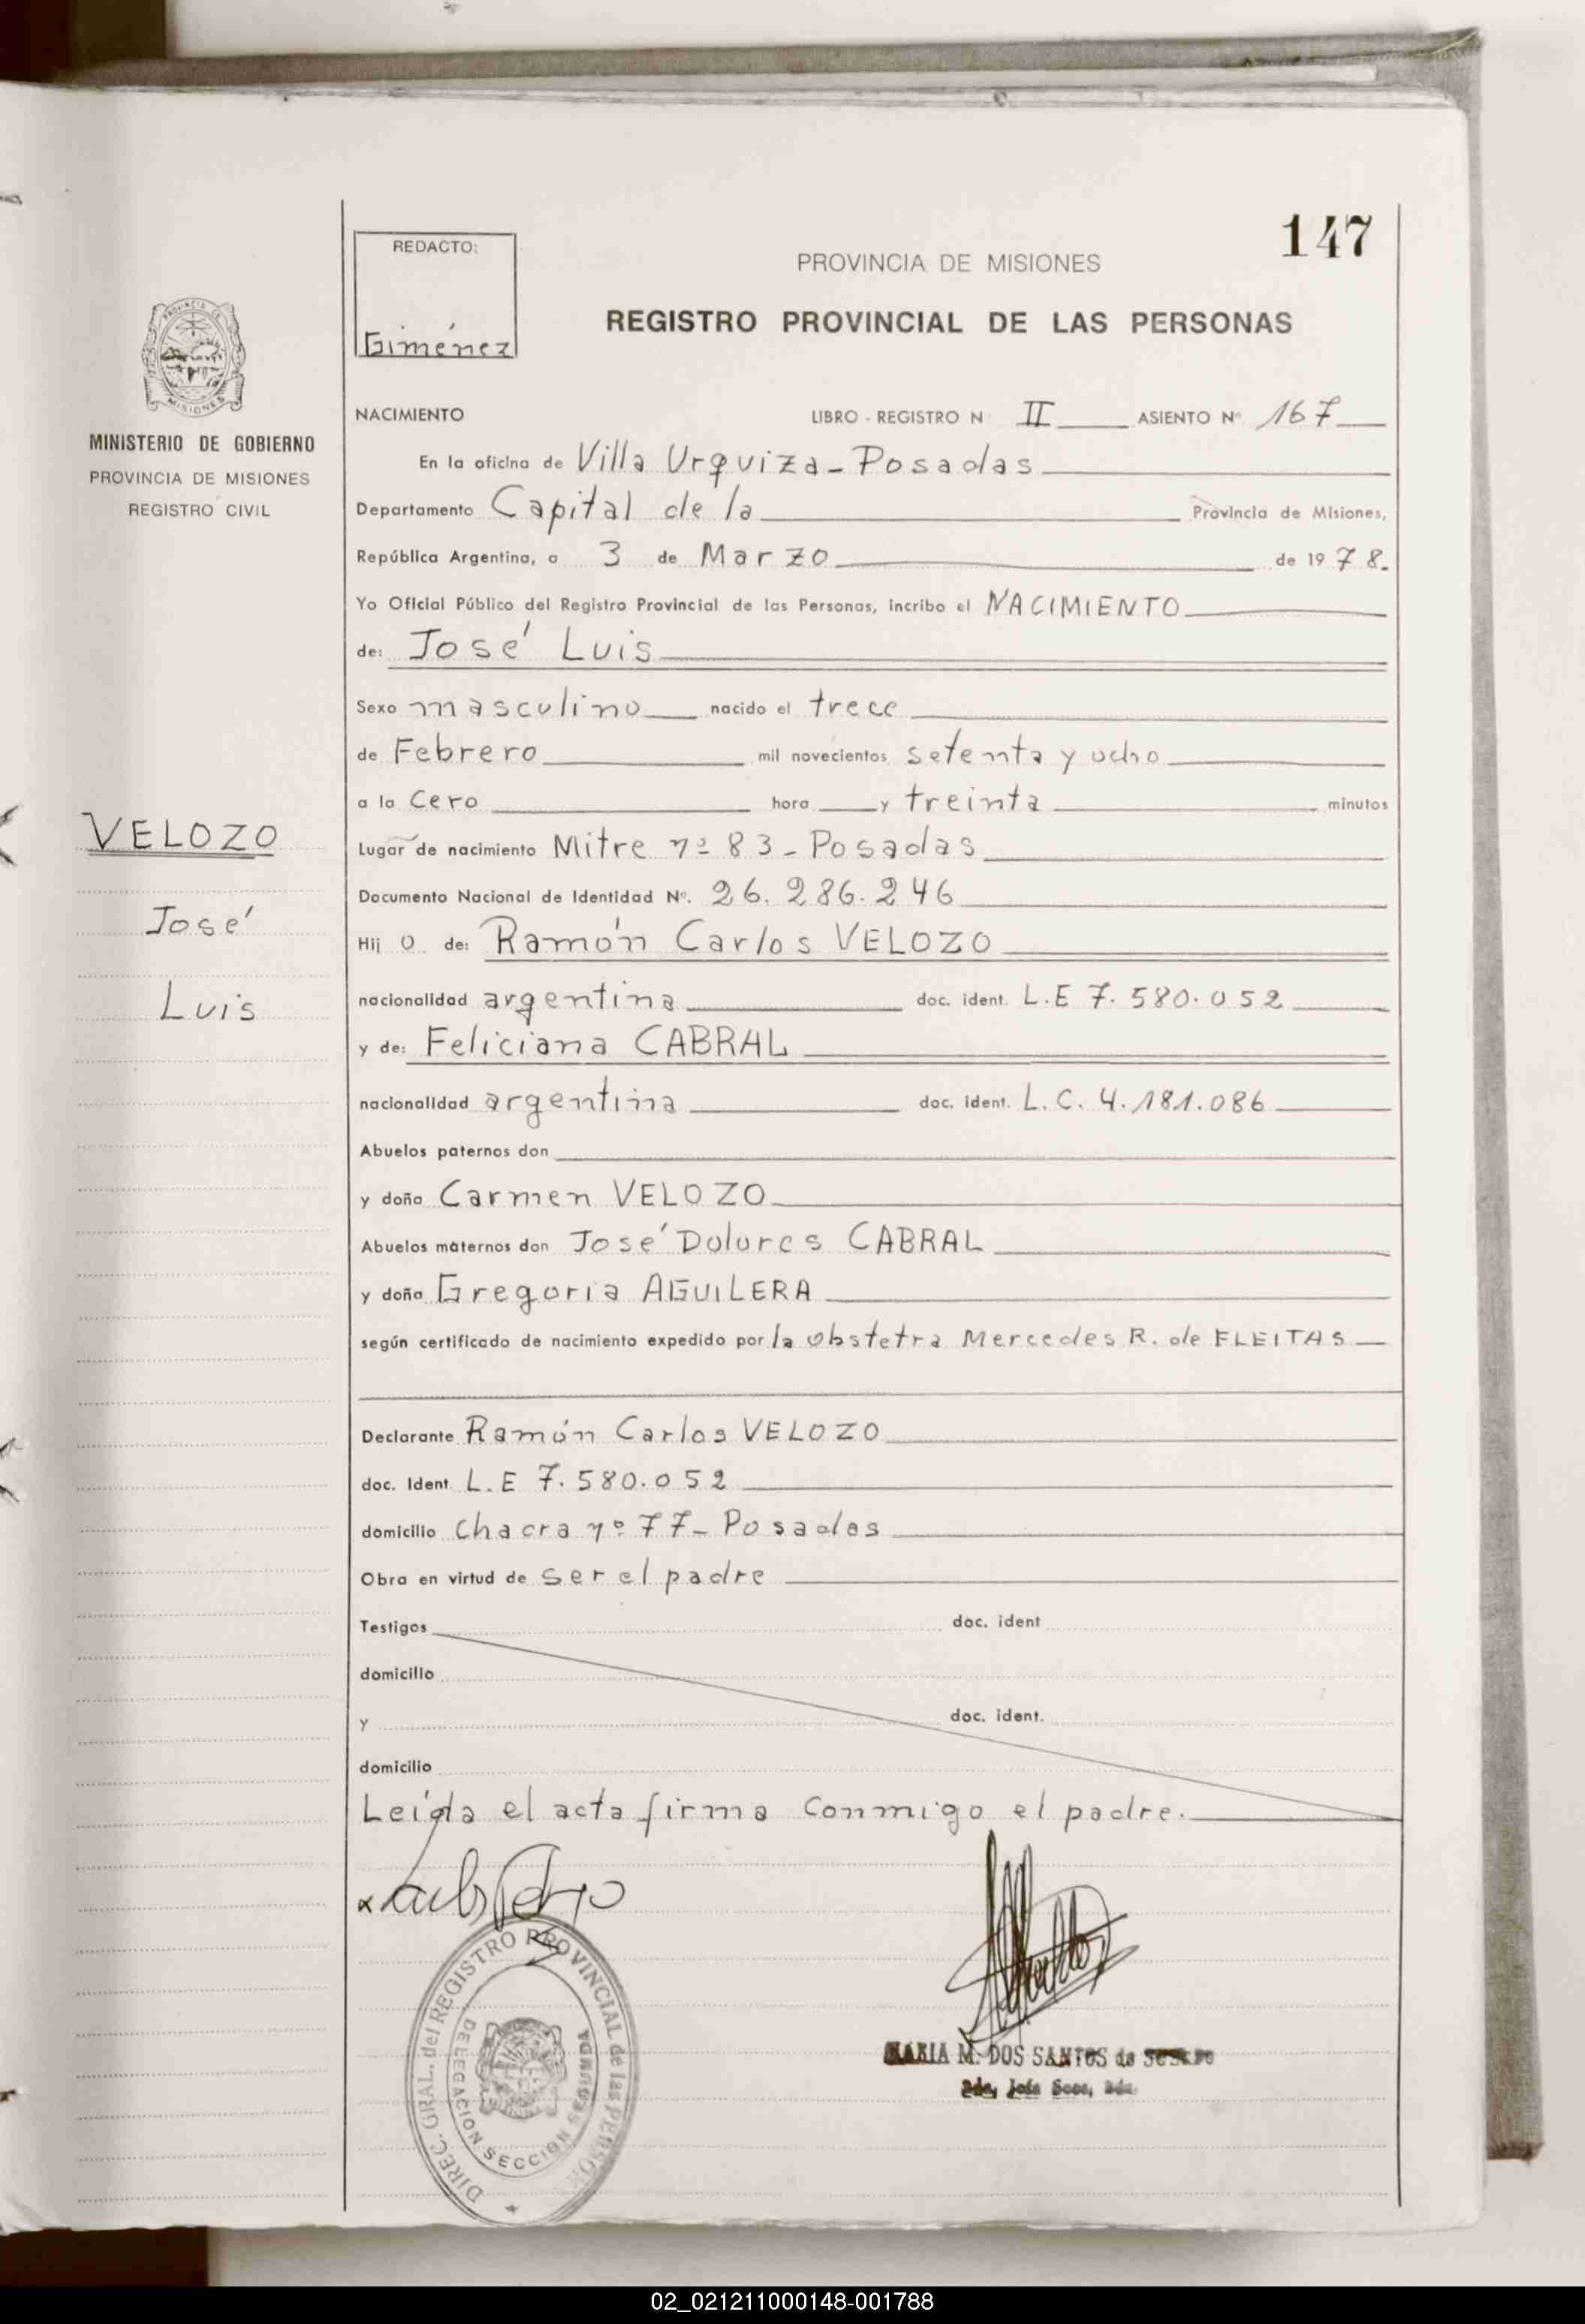 147
REDACTO:
Giménez
PROVINCIA DE MISIONES
REGISTRO PROVINCIAL DE LAS PERSONAS
PROVINCIA DE
MISIONES
MINISTERIO DE GOBIERNO
PROVINCIA DE MISIONES
REGISTRO CIVIL
VELOZO
José
Luis
NACIMIENTO LIBRO - REGISTRO N II ASIENTO Nº 167
En la oficina de Villa Urquiza - Posadas
Departamento Capital de la Provincia de Misiones,
República Argentina, a 3 de Marzo de 1978.
Yo Oficial Público del Registro Provincial de las Personas, incribo el NACIMIENTO
de: José Luis
Sexo masculino nacido el trece
de Febrero mil novecientos setenta y ocho
a la cero hora y treinta minutos
Lugar de nacimiento Mitre nº 83 - Posadas
Documento Nacional de Identidad Nº. 26.286.246
Hij o de: Ramón Carlos VELOZO
nacionalidad argentina doc. ident. L.E 7.580.052
y de: Feliciana CABRAL
nacionalidad argentina doc. ident. L.C. 4.181.086
Abuelos paternos don
y doña Carmen VELOZO
Abuelos maternos don José Dolores CABRAL
y doña Gregoria AGUILERA
según certificado de nacimiento expedido por la obstetra Mercedes R. de FLEITAS
Declarante Ramón Carlos VELOZO
doc. Ident. L.E 7.580.052
domicilio Chacra nº 77 - Posadas
Obra en virtud de ser el padre
Testigos doc. ident
domicilio
y doc. ident.
domicilio
Leída el acta firma conmigo el padre.
DIREC. GRAL. del REGISTRO PROVINCIAL de las PERSON
DELEGACION SECCION SEGUNDA
MARIA M. DOS SANTOS de
02_021211000148-001788